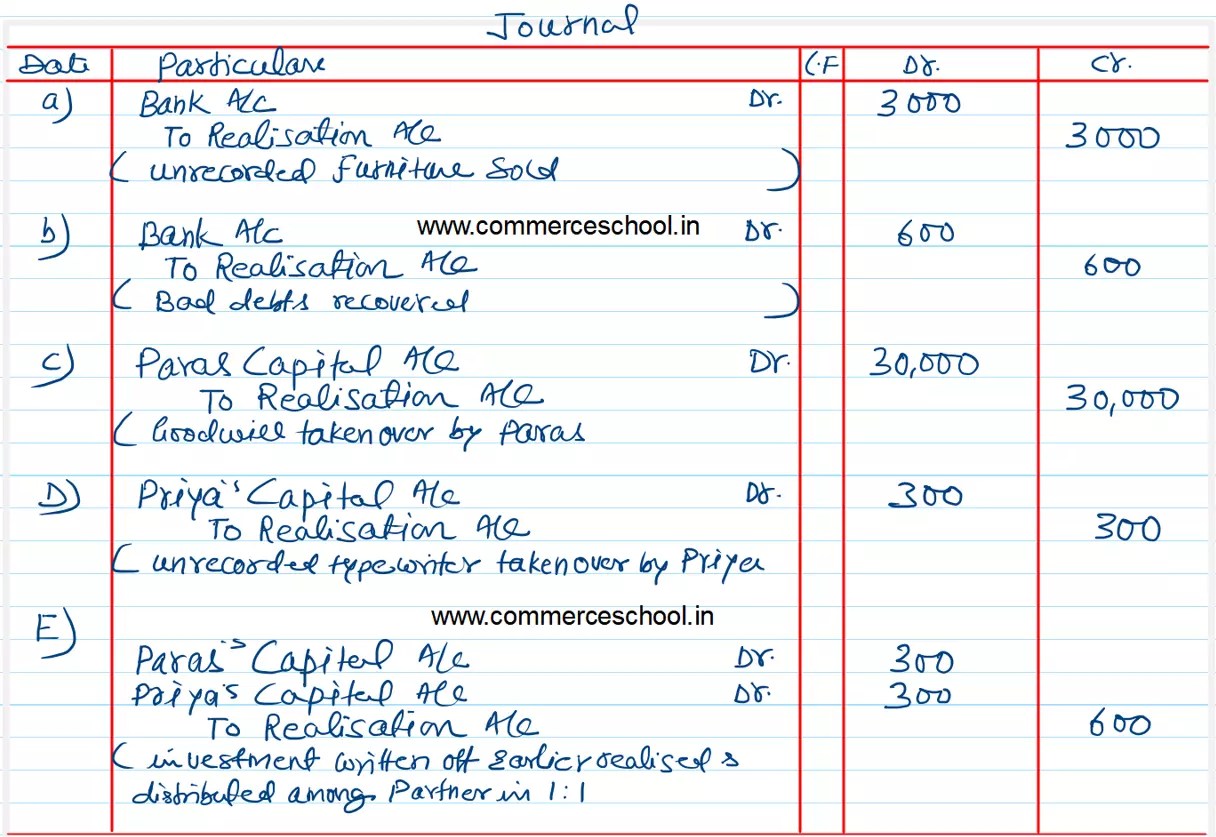 Journal
Date Particulars C.F Dr. Cr.
a) Bank A/c Dr. 3000
To Realisation A/c 3000
( unrecorded Furniture Sold )
b) Bank A/c www.commerceschool.in Dr. 600
To Realisation A/c 600
( Bad debts recovered )
c) Paras Capital A/c Dr. 30,000
To Realisation A/c 30,000
( Goodwill taken over by Paras
D) Priya's Capital A/c Dr. 300
To Realisation A/c 300
( unrecorded typewriter taken over by Priya
E) www.commerceschool.in
Paras's Capital A/c Dr. 300
Priya's Capital A/c Dr. 300
To Realisation A/c 600
( investment written off earlier realised &
distributed among Partner in 1:1